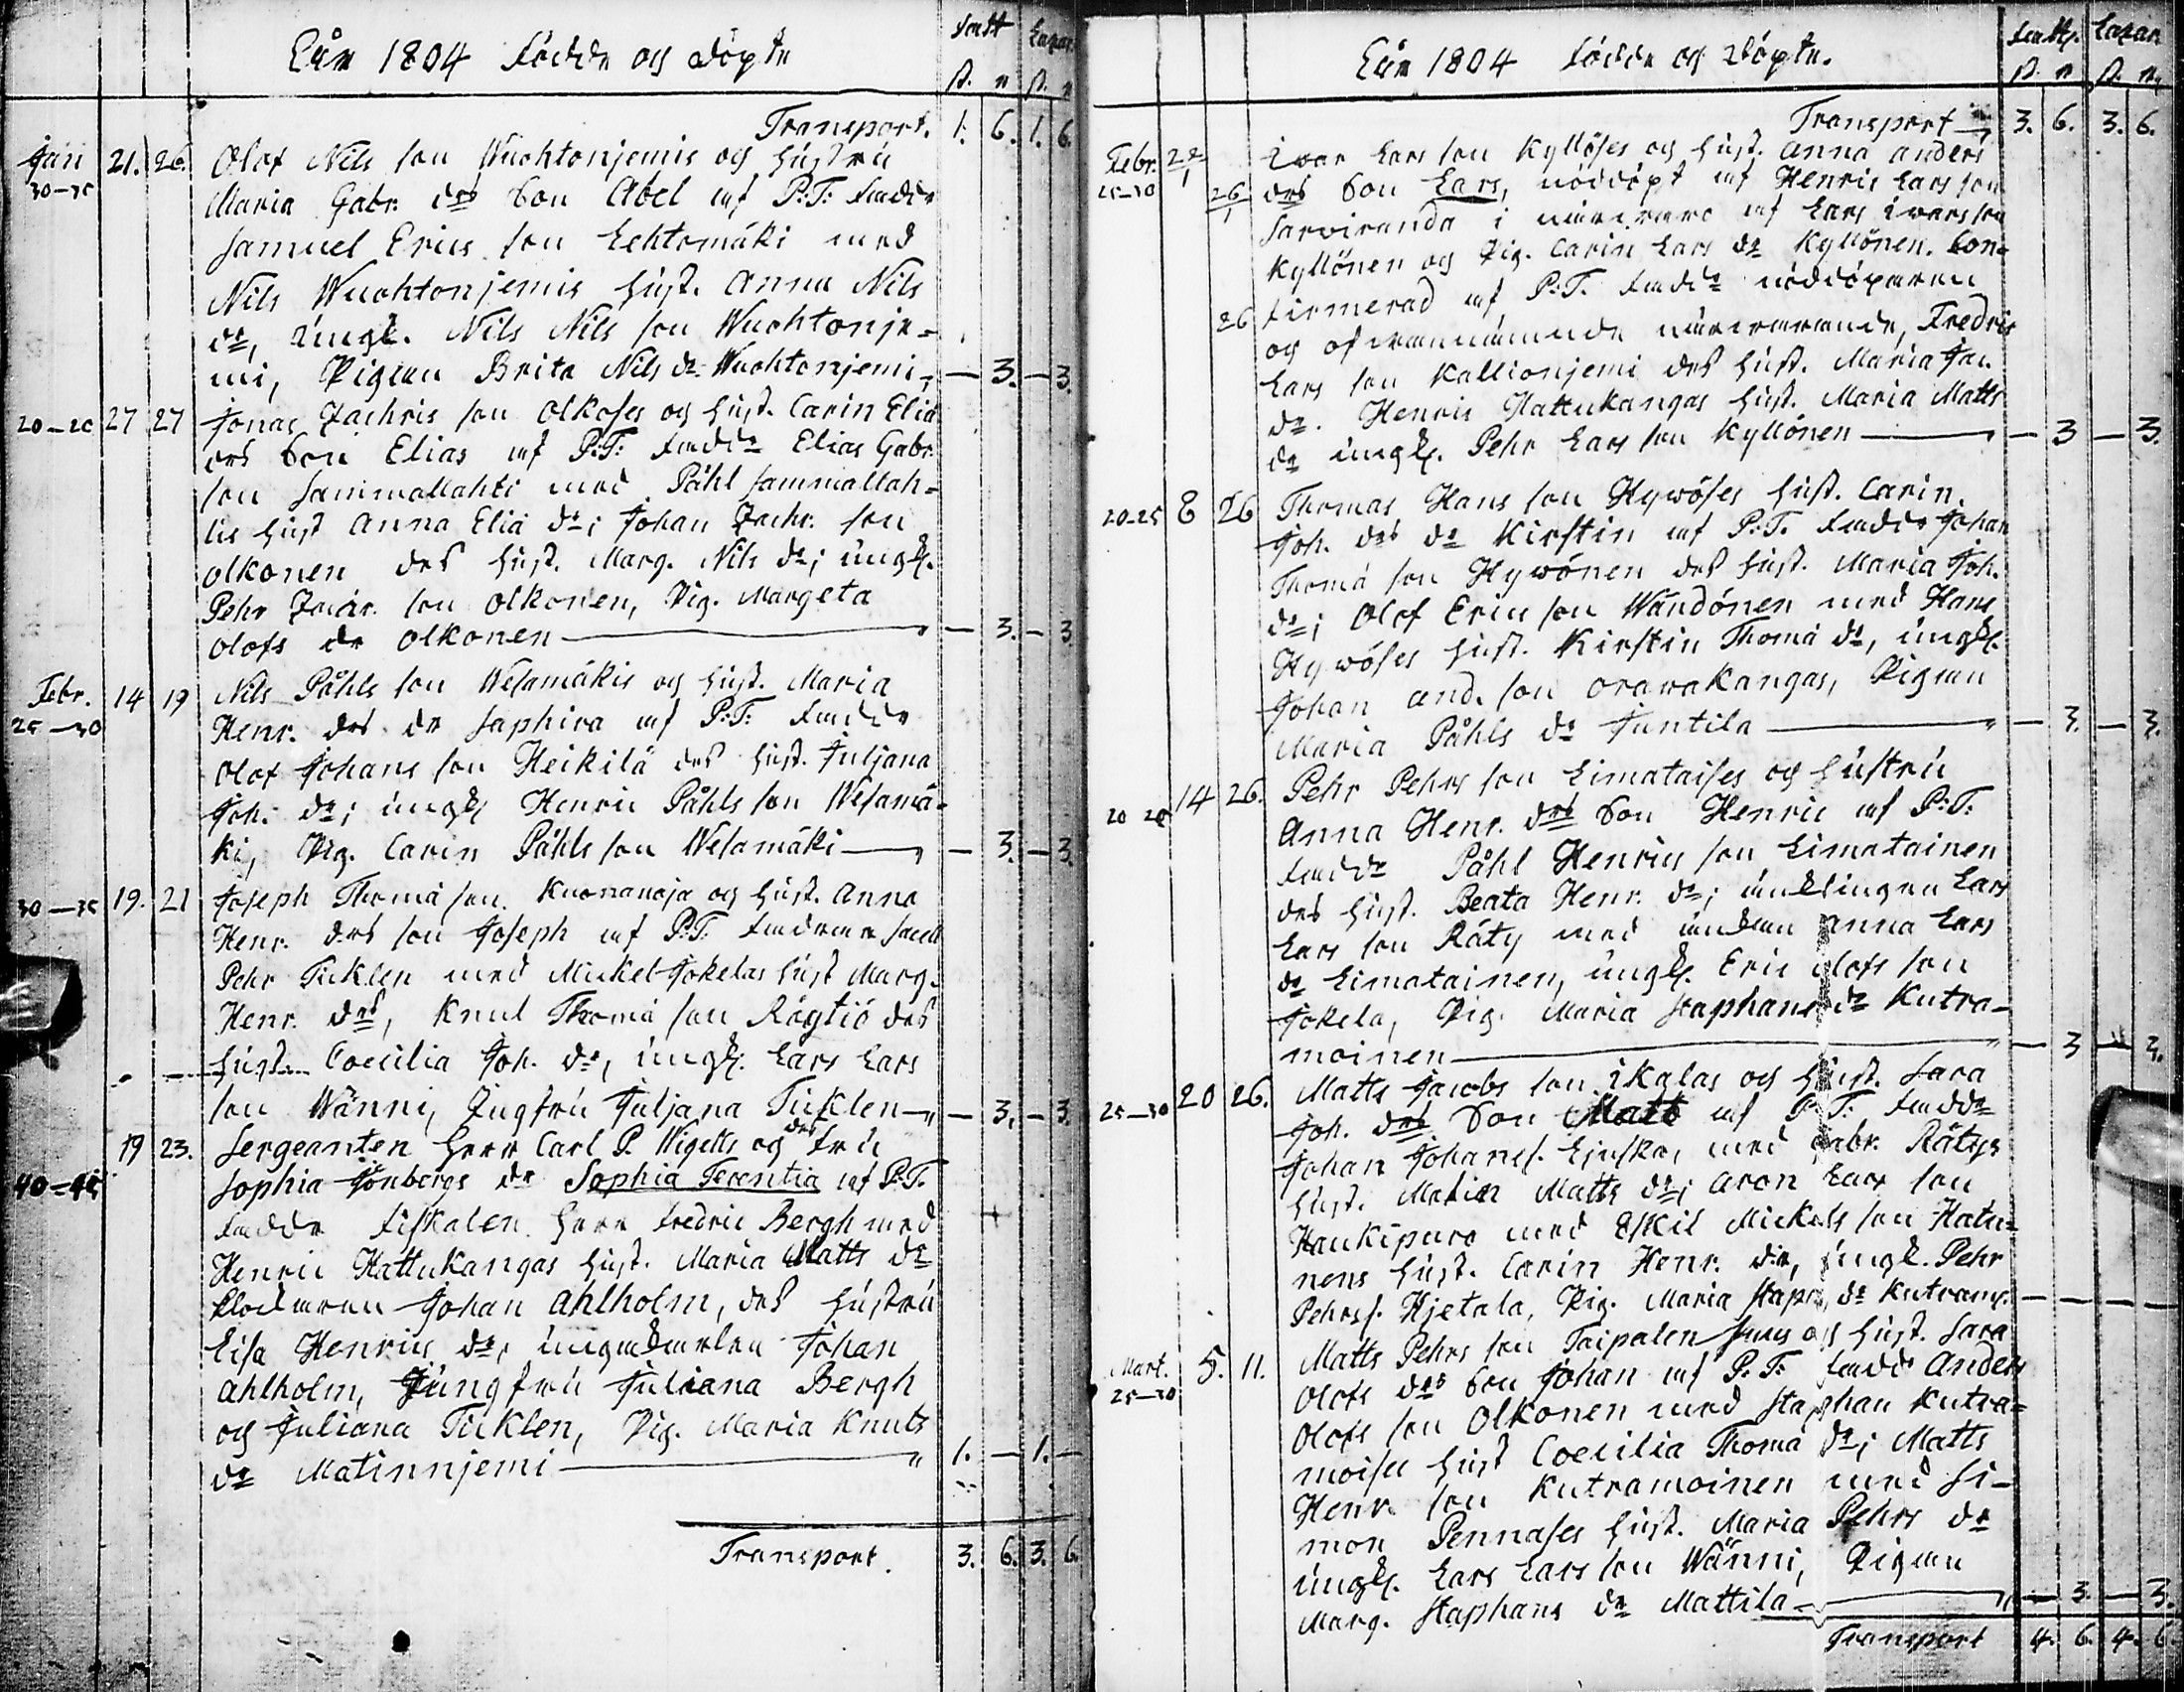 År 1804 Födde og döpte
Transport. 1. 6. 1. 6.
Jan 21. 26. Olof Nils son Wuohtonjemis og hustru
30-35 Maria Gabr. drs Son Abel af P:T: faddr
Samuel Erics son Lehtomäki med
Nils Wuohtonjemis hust. Anna Nils
dr, ungk. Nils Nils son Wuohtonje-
mi, Pigan Brita Nils dr Wuohtonjemi, — 3. — 3.
27 27 Jonas Zachris son Olkoses og hust. Carin Eliä
drs Son Elias af P:T: faddr Elias Gabr.
son Sammallahti med Påhl Sammallah-
tis hust Anna Eliä dr; Johan Zachr. son
Olkonen des hust. Marg. Nils dr; ungk.
Pehr Zachr. son Olkonen, Pig. Margeta
Olofs dr Olkonen — 3. — 3.
Febr. 14 19 Nils Påhls son Wesamäkis og hust. Maria
25-30 Henr. drs dr Saphira af P:T: faddr
Olof Johans son Heikilä des hust. Juljana
Joh. dr; ungk Henric Påhls son Wesamä-
ki, Pig. Carin Påhls son Wesamäki — 3. — 3.
19. 21 Joseph Thomä son Kuonanoja og hust. Anna
Henr. drs son Joseph af P:T:
Pehr Ticklen med Mickel Jokelas hust Marg.
Henr. drs, Knut Thomä son Rägtiö des
hust. Coecilia Joh. dr, ungk. Lars Lars
son Wänni, Jugfru Juljana Ticklen — 3. — 3.
19 23. Sergeanten Herr Carl P. Wigelts og des fru
Sophia Jönbergs dr Sophia Terentia af P:T.
faddr Fiskalen Herr Fredric Bergh med
Henric Hattukangas hust. Maria Matts dr
Klockaren Johan Ahlholm, des hustru
Lisa Henrics dr, Johan
Ahlholm, Jungfru Juliana Bergh
og Juliana Ticklen, Pig. Maria Knuts
dr Matinnjemi 1. — 1. —
Transport. 3. 6. 3. 6.
År 1804 Födde og Döpte.
Transport 3. 6. 3. 6.
Febr. Ivar Lars son Kyllöses og hust. Anna Anders
25-30 drs Son Lars, nöddöpt af Henric Lars son
Sarviranda i närvaro af Lars Ivars son
Kyllönen og Pig. Carin Lars dr Kyllönen. Con-
26 firmerad af P:T. faddr nöddöparen
og ofvannämnde närvarande, Fredric
Lars son Kallionjemi des hust. Maria Jac.
dr. Henric Hattukangas hust. Maria Matts
dr ungk. Pehr Lars son Kyllönen — 3 — 3.
20-25 8 26 Thomas Hans son Hywöses hust. Carin
Joh. drs dr Kirstin af P:T. faddr Johan
Thomä son Hywönen des hust. Maria Joh.
dr; Olof Erics son Wändönen med Hans
Hywöses hust. Kirstin Thomä dr, ungk.
Johan And. son Orawakangas, Pigan
Maria Påhls dr Juntila — 3. — 3.
14 26. Pehr Pehrs son Limataises og hustru
Anna Henr. drs Son Henric af P:T:
faddr Påhl Henrics son Limatainen
des hust. Beata Henr. dr; änklingen Lars
Lars son Räty med änkan Anna Lars
dr Limatainen, ungk. Eric Olofs son
Jokela, Pig. Maria Staphans dr Kutra-
moinen — 3 — 3.
25-30 20 26. Matts Jacobs son Ikalas og hust. Sara
Joh. drs Son Matts af P:T: faddr
Johan Johans s. med Gabr. Rätys
hust. Maria Matts dr; Aron Lars son
Haukipuro med Eskil Mickels son Hatu-
nens hust. Carin Henr. dr, ungk. Pehr
Pehrs s. Hjetala, Pig. Maria Staph. dr Kutram. — — — —
Mart. 5. 11. Matts Pehrs son Taipalen og hust. Sara
25-30 Olofs drs Son Johan af P.T. faddr Anders
Olofs son Olkonen med Staphan Kutra-
moises hust Coecilia Thomä dr; Matts
Henr. son Kutramoinen med Si-
mon Pennases hust. Maria Pehrs dr
ungk. Lars Lars son Wänni, Pigan
Marg. Staphans dr Mattila — 3. — 3.
Transport 4. 6. 4. 6